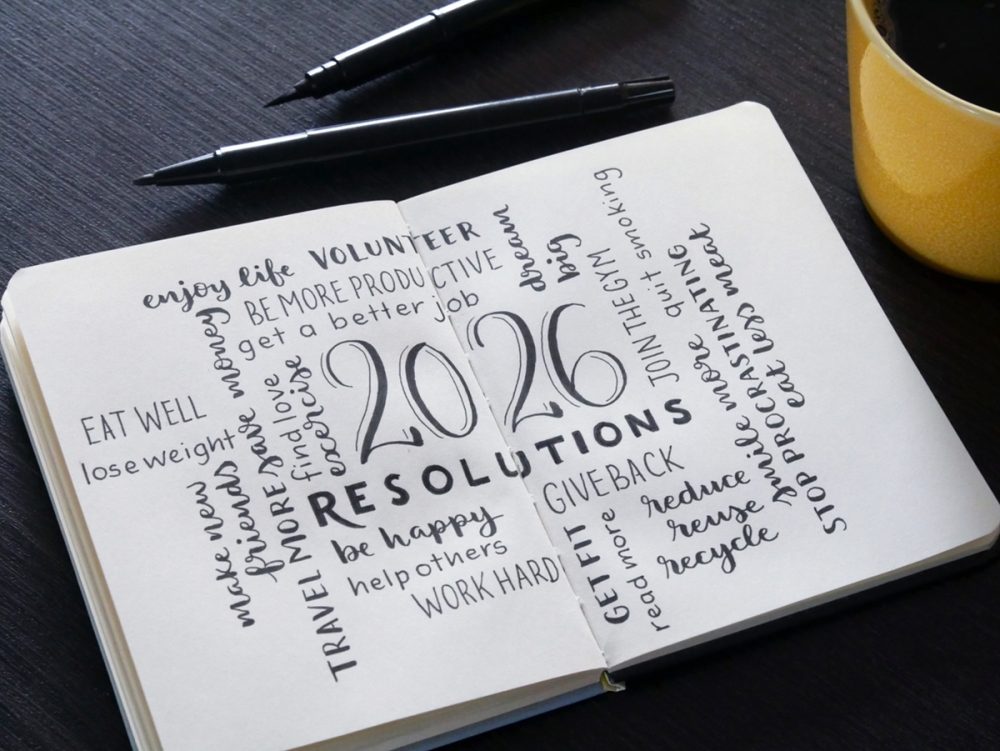 enjoy life
VOLUNTEER
BE MORE PRODUCTIVE
get a better job
dream
big
quit smoking
JOIN THE GYM
2026
RESOLUTIONS
EAT WELL
lose weight
save money
find love
exercise
make new
friends
TRAVEL MORE
be happy
help others
WORK HARD
GIVE BACK
GET FIT
read more
reduce
reuse
recycle
smile more
STOP PROCRASTINATING
eat less meat